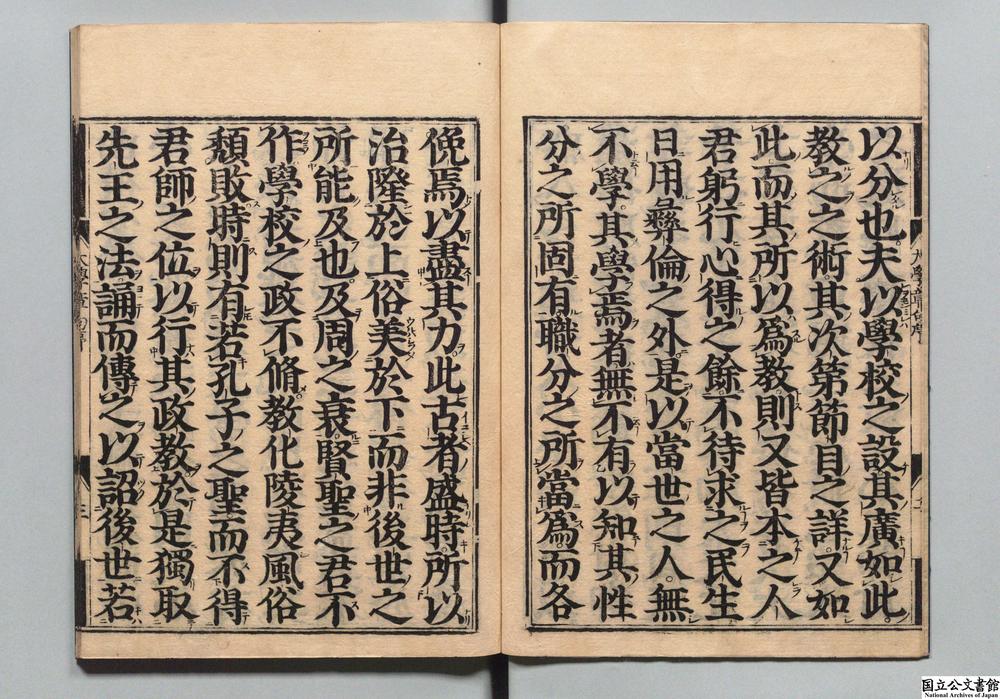 以分也夫以學校之設其廣如此
教之之術其次第節目之詳又如
此而其所以爲教則又皆本之人
君躬行心得之餘不待求之民生
日用彝倫之外是以當世之人無
不學其學焉者無不有以知其性
分之所固有職分之所當爲而各
俛焉以盡其力此古者盛時所以
治隆於上俗美於下而非後世之
所能及也及周之衰賢聖之君不
作學校之政不脩教化陵夷風俗
頽敗時則有若孔子之聖而不得
君師之位以行其政教於是獨取
先王之法誦而傳之以詔後世若
国立公文書館
National Archives of Japan